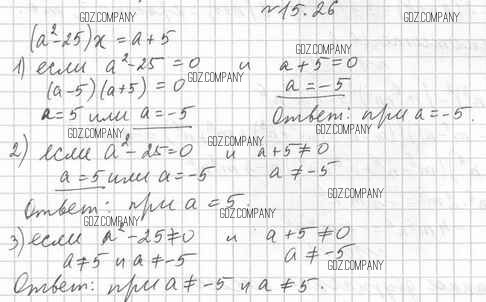 №15.26
GDZ.COMPANY GDZ.COMPANY
(a²-25)x = a+5
GDZ.COMPANY
1) если a²-25=0 и a+5=0
GDZ.COMPANY
(a-5)(a+5) = 0 a=-5
a=5 или a=-5 Ответ: при a=-5.
GDZ.COMPANY GDZ.COMPANY
GDZ.COMPANY
2) если a²-25=0 и a+5≠0
a=5 или a=-5 a≠-5
GDZ.COMPANY
Ответ: при a=5.
GDZ.COMPANY GDZ.COMPANY
3) если a²-25≠0 и a+5≠0
a≠5 и a≠-5 a≠-5
GDZ.COMPANY
Ответ: при a≠-5 и a≠5.